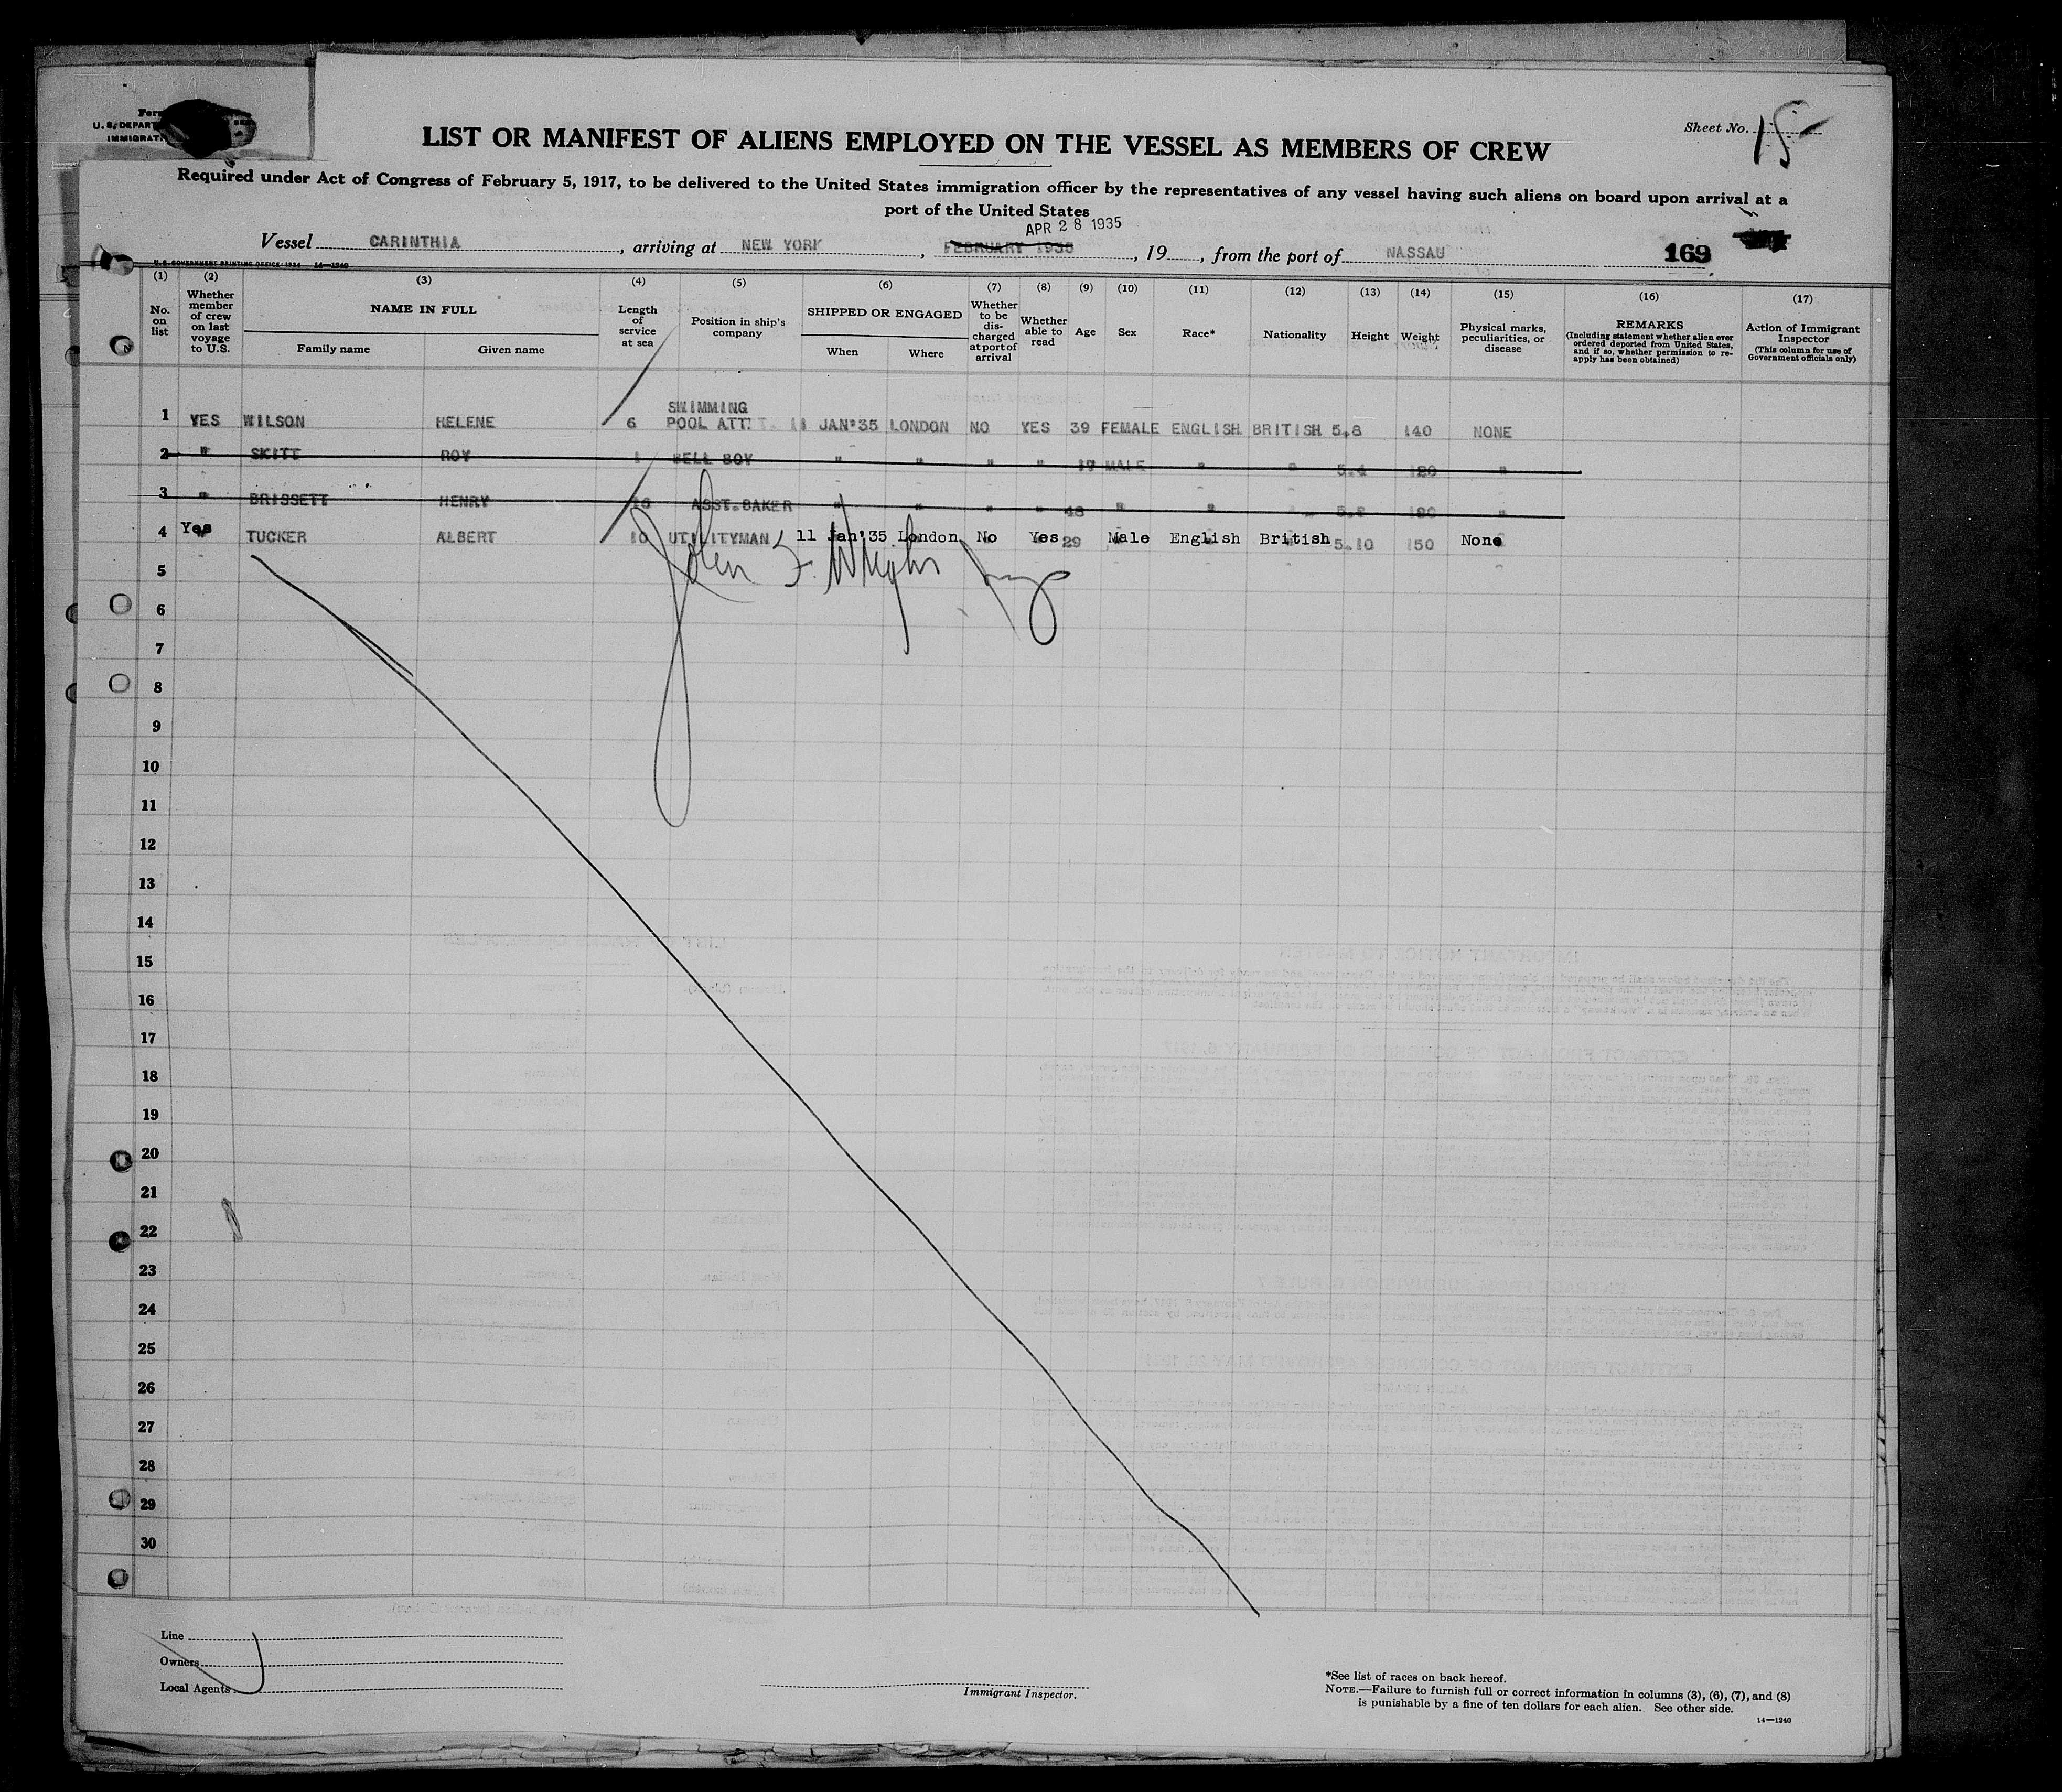 Form
U. S. DEPART
IMMIGRATI
Sheet No. 15
LIST OR MANIFEST OF ALIENS EMPLOYED ON THE VESSEL AS MEMBERS OF CREW
Required under Act of Congress of February 5, 1917, to be delivered to the United States immigration officer by the representatives of any vessel having such aliens on board upon arrival at a
port of the United States
APR 28 1935
Vessel CARINTHIA, arriving at NEW YORK, FEBRUARY 1935, 19, from the port of NASSAU 169
U. S. GOVERNMENT PRINTING OFFICE: 1934 14—1240
(1) (2) (3) (4) (5) (6) (7) (8) (9) (10) (11) (12) (13) (14) (15) (16) (17)
No. on list
Whether member of crew on last voyage to U.S.
NAME IN FULL
Family name
Given name
Length of service at sea
Position in ship's company
SHIPPED OR ENGAGED
When
Where
Whether to be discharged at port of arrival
Whether able to read
Age
Sex
Race*
Nationality
Height
Weight
Physical marks, peculiarities, or disease
REMARKS
(Including statement whether alien ever ordered deported from United States, and if so, whether permission to re-apply has been obtained)
Action of Immigrant Inspector
(This column for use of Government officials only)
SWIMMING
1 YES WILSON HELENE 6 POOL ATT. 11 JAN'35 LONDON NO YES 39 FEMALE ENGLISH BRITISH 5.8 140 NONE
2 " SKITT ROY 1 BELL BOY " " " " 17 MALE " " 5.4 120 "
3 " BRISSETT HENRY 16 ASST.BAKER " " " " 48 " " " 5.8 180 "
4 Yes TUCKER ALBERT 10 UTILITYMAN 11 Jan'35 London No Yes 29 Male English British 5.10 150 None
John F. Wright
5
6
7
8
9
10
11
12
13
14
15
16
17
18
19
20
21
22
23
24
25
26
27
28
29
30
Line
Owners
Local Agents
Immigrant Inspector.
*See list of races on back hereof.
NOTE.—Failure to furnish full or correct information in columns (3), (6), (7), and (8)
is punishable by a fine of ten dollars for each alien. See other side.
14—1240